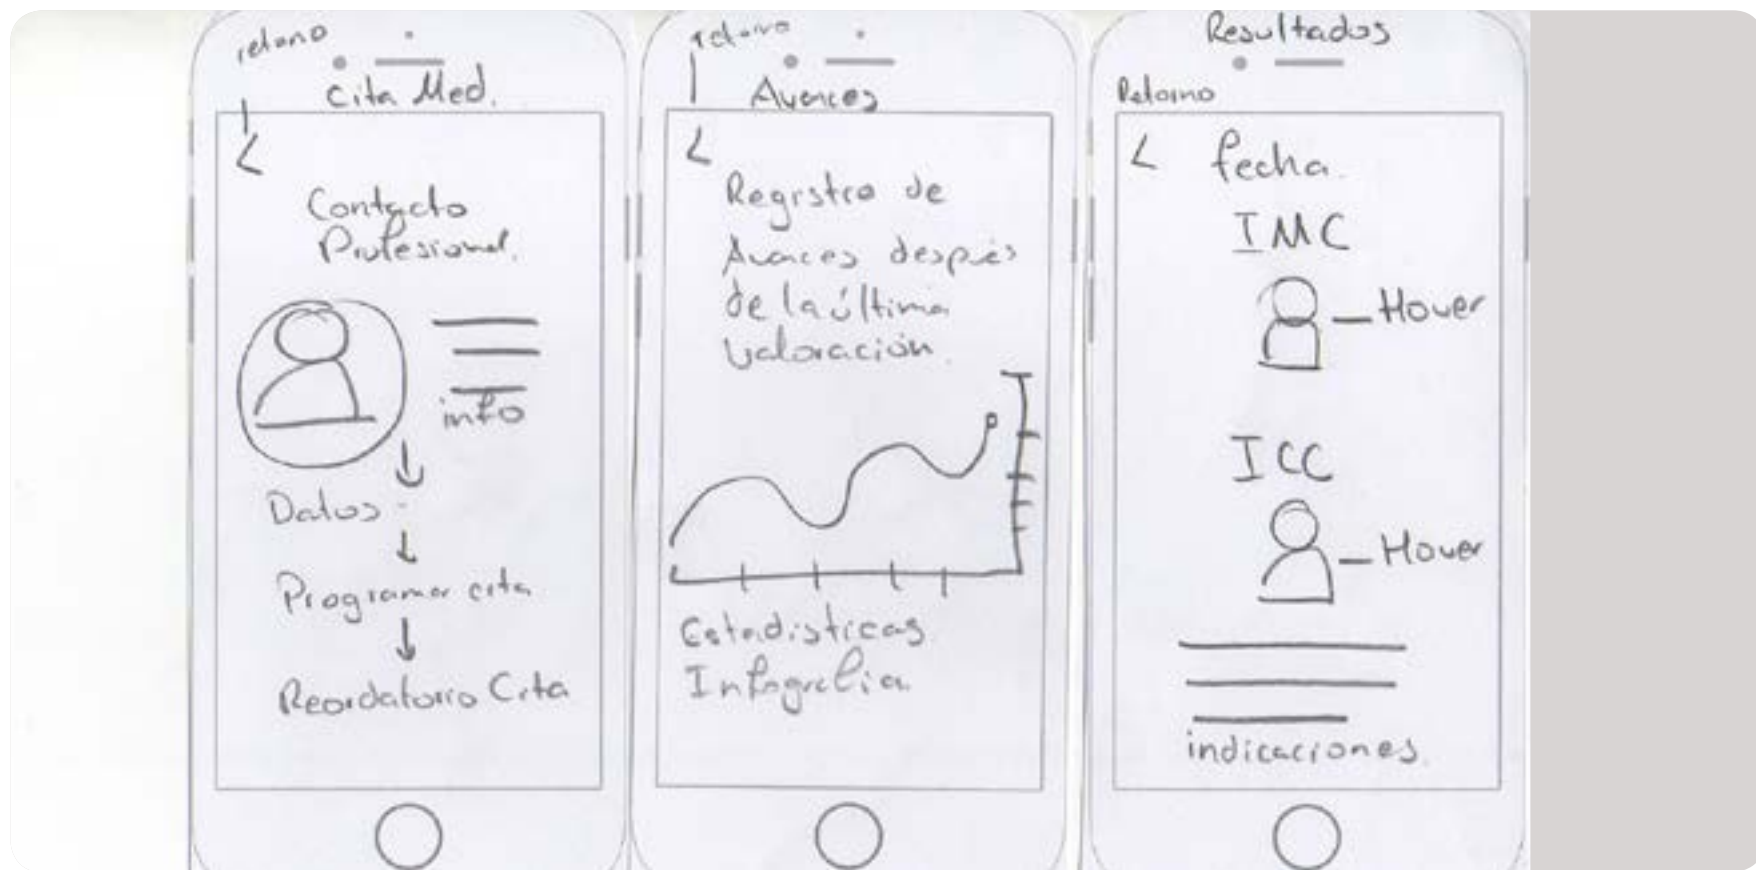 retorno
Cita Med.
Contacto
Profesional.
info
Datos
Programar cita
Recordatorio Cita
retorno
Avances
Registro de
Avances después
de la última
valoración.
Estadísticas
Infografía
Resultados
Retorno
fecha.
IMC
Hover
ICC
Hover
indicaciones.